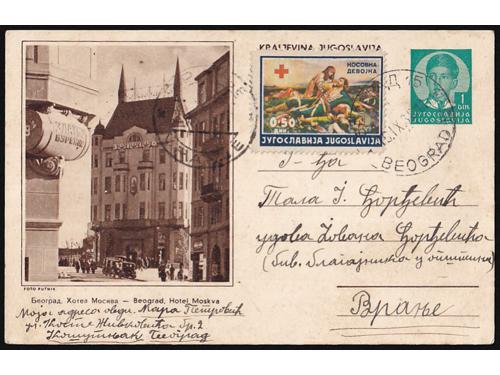 KRALJEVINA JUGOSLAVIJA
КОСОВКА
ДЕВОЈКА
0·50
ДИН.
ЈУГОСЛАВИЈА JUGOSLAVIJA
1
DIN.
ЈУГОСЛАВИЈА
JUGOSLAVIJA
BEOGRAD
Г-ђа
Тала Ј. Ђорђевић
удова Јована Ђорђевића
(бив. благајника у општини)
Врање
FOTO PUTNIK
Београд, Хотел Москва — Beograd, Hotel Moskva
Моја адреса овди. Мара Петровић
ул. Косте Живковића бр. 2
Београд